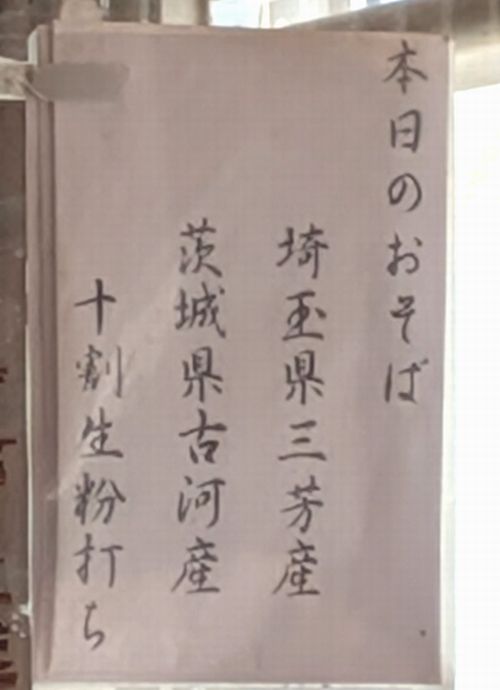 本日のおそば
埼玉県三芳産
茨城県古河産
十割生粉打ち